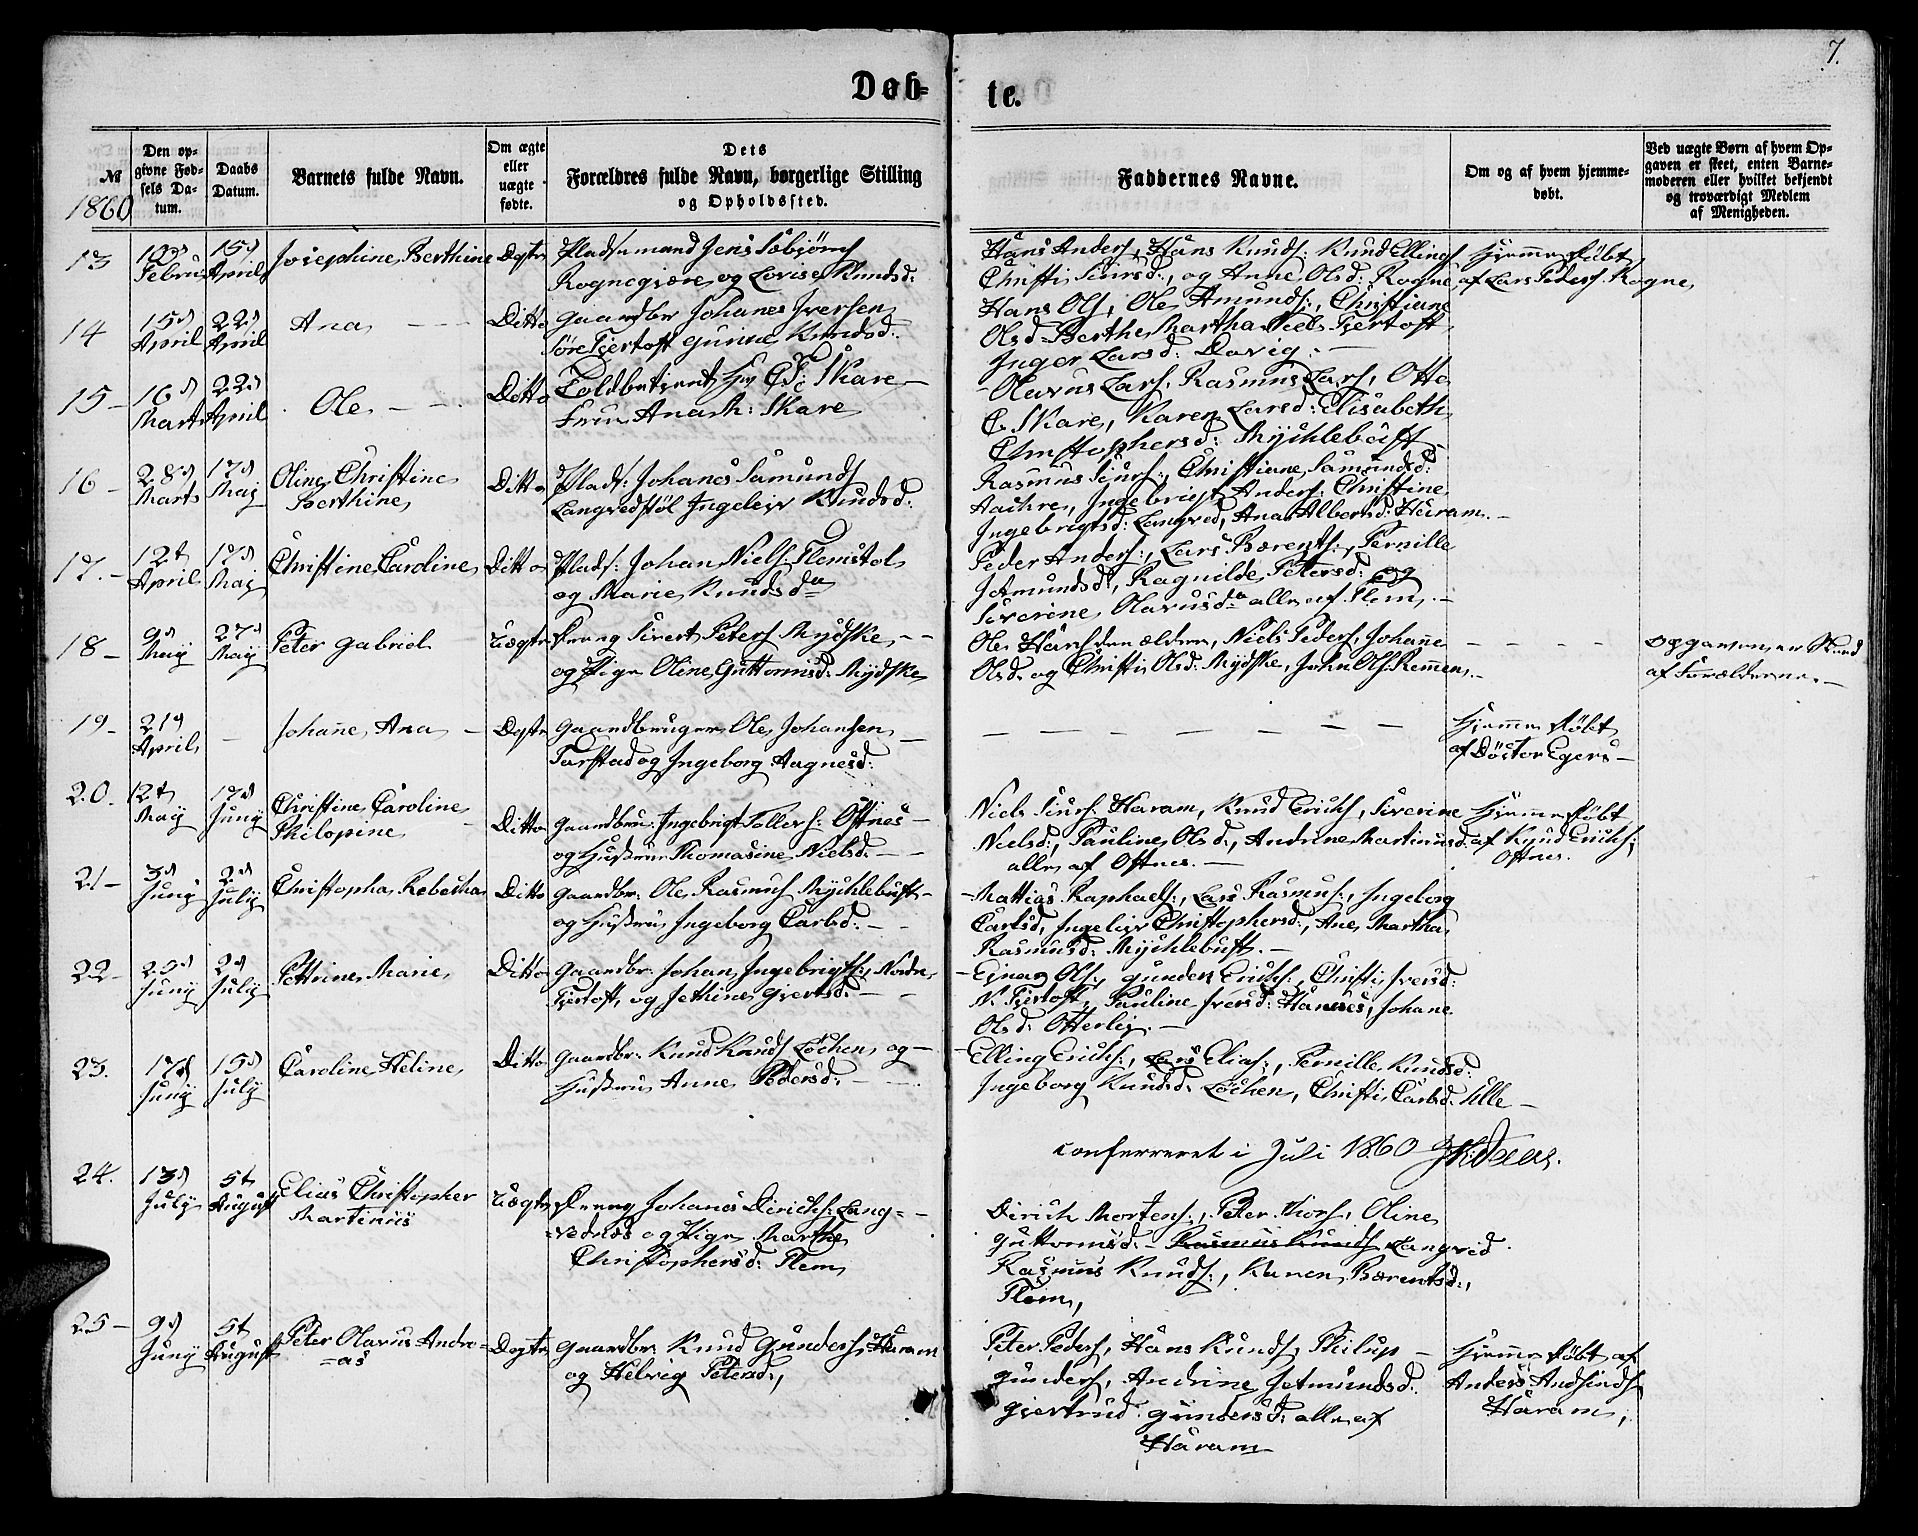 7.
Døb-
te.
№
1860
Den op-
givne Fød-
sels Da-
tum.
Daabs
Datum.
Barnets fulde Navn.
Om ægte
eller
uægte
fødte.
Dets
Forældres fulde Navn, borgerlige Stilling
og Opholdssted.
Faddernes Navne.
Om og af hvem hjemme-
døbt.
Ved uægte Børn af hvem Op-
gaven er skeet, enten Barne-
moderen eller hvilket bekjendt
og troværdigt Medlem
af Menigheden.
13
Februar
15d
April
Josephine Berthine
Ægte
Pladsemand Jens
Rogne og Lovise Knudsd:
Hans Anders:, Hans Knuds: Knud Ellings
Christi Siursd:, og Anne Olsd: Rogne
Hjemmedøbt
af Lars Peders: Rogne
14
15d
April
22d
April
Ana
Ditto
Gaardbr Johanes Iversen
Søre Fjertoft Gurine Knudsd:
Hans Ols:, Ole Amunds:, Christiane
Olsd: Berthe Martha Niels Fjertoft
Inger Larsd: Davig.
15
16d
Marts
22d
April
Ole
Ditto
Toldbetjent Hr C.F. Skare
Frue Ana M: Skare
Olavus Lars:, Rasmus Lars:, Otto
C. Skare, Karen Larsd: Elisabeth
Christophersd: Mychlebust
16
28d
Marts
17d
Maj
Oline Christine
Berthine
Ditto
Plads: Johanes Samunds
Langvedstøl Ingeleiv Knudsd:
Rasmus Siurs:, Christiane Samundsd:
Aachre, Ingebrigt Anders: Christine
Ingebrigtsd: Langved, Ana Albertsd: Haram.
17.
12t
April
17d
Maj
Christine Caroline
Ditto
Plads: Johan Niels: Flemstøl
og Marie Knudsd
Peder Anders:, Lars Bærents:, Pernille
Jetmundsd:, Ragnilde Petersd: og
Siverine Olavusd alle af Flem.
18
9d
Maij
27d
Maij
Peter Gabriel
Uægte
Dreng Sivert Peters Mydske
og Pige Oline Guttormsd: Mydske
Ole Hans: den ældere, Niels Peders, Johane
Olsd: og Christi Olsd: Mydske, John Ols: Remmen.
Opgaven er skeed
af Forældrene.
19
21d
April
Johane Ana
Ægte
Gaardbruger Ole Johansen
Farstad og Ingeborg Aagnesd:
Hjemmedøbt
af Doctor Egers
20.
12t
Maij
17d
Junij
Christine Caroline
Philopine
Ditto
Gaardbru: Ingebrigt Tollers: Ostnes
og Hustru Thomasine Nielsd:
Niels Siurs: Haram, Knud Erichs, Siverine
Nielsd:, Pauline Olsd:, Andrine Martinusd:
alle af Ostnes.
Hjemmedøbt
af Knud Erichs:
Ostnes.
21
3d
Junij
2d
Julij
Christopha Rebecha
Ditto
Gaardbr: Ole Rasmus: Mychlebust
og Hustru Ingeborg Carlsd:
Mattias Raphaels:, Lars Rasmus:, Ingeborg
Carlsd, Ingeleiv Christophersd:, Ane Martha
Rasmusd: Mychlebust.
22
23d
Junij
2d
Julij
Pettrine Marie
Ditto
Gaardbr: Johan Ingebrigts:, Nordre
Fjertoft, og Jethine Gjertsd:
Ejnar Ols:, Gunder Erichs:, Christi Iversd:
N. Fjertoft, Pauline Iversd: Hamnes, Johane
Olsd: Otterlei.
23.
17d
Junij
15d
Julij
Caroline Heline
Ditto
Gaardbr: Knud Knuds Løchen og
Hustru Anne Pedersd:
Elling Erichs:, Lars Elias:, Pernille Knudsd:
Ingeborg Knudsd: Løchen, Christi Carlsd: Ulle
Conferreret i Juli 1860
24.
13d
Julij
5t
August
Elias Christopher
Martinus
Uægte
Dreng Johanes Dirichs: Lang-
og Pige Marthe
Christophersd: Flem
Dirich Mortens:, Peter Thors, Oline
Guttormsd: Rasmus Knuds Langved
Rasmus Knuds:, Karen Bærentsd:,
Flem,
25
9d
Junij
5t
August
Peter Olavus Andre-
as
Ægte
Gaardbr: Knud Gunders: Haram
og Helvig Petersd:,
Peter Peders, Hans Knuds, Philip
Gunders, Andrine Jetmundsd:
Gjertrud Gundersd: alle af
Haram
Hjemmedøbt af
Anders
Haram,